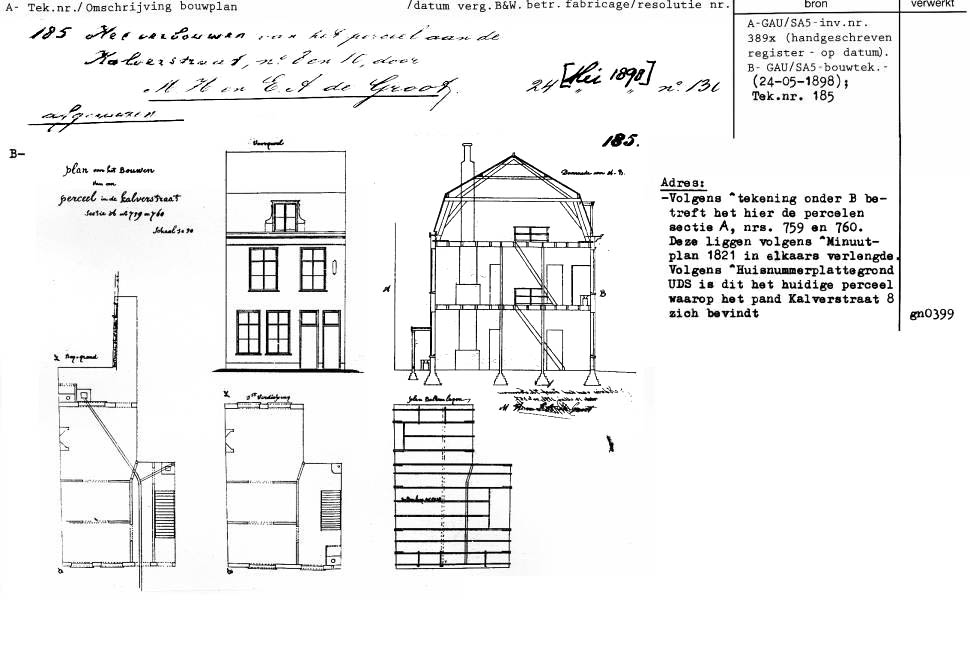 A- Tek.nr./ Omschrijving bouwplan /datum verg.B&W. betr. fabricage/resolutie nr. bron verwerkt
185 Het verbouwen van het perceel aan de
Kalverstraat, no 8 en 10, door
M H en E A de Groot.
24 [Mei 1898] no 131
afgewezen
A-GAU/SA5-inv.nr.
389x (handgeschreven
register - op datum).
B- GAU/SA5-bouwtek.-
(24-05-1898);
Tek.nr. 185
B-
185.
plan van het Bouwen
van een
perceel in de Kalverstraat
Sectie A no 759 en 760
Schaal
Voorgevel
Doorsnede van A. B.
A
B
Beg. grond
1ste Verdieping
plan Balken lagen
Adres:
-Volgens ^tekening onder B be-
treft het hier de percelen
sectie A, nrs. 759 en 760.
Deze liggen volgens ^Minuut-
plan 1821 in elkaars verlengde.
Volgens ^Huisnummerplattegrond
UDS is dit het huidige perceel
waarop het pand Kalverstraat 8
zich bevindt
gn0399